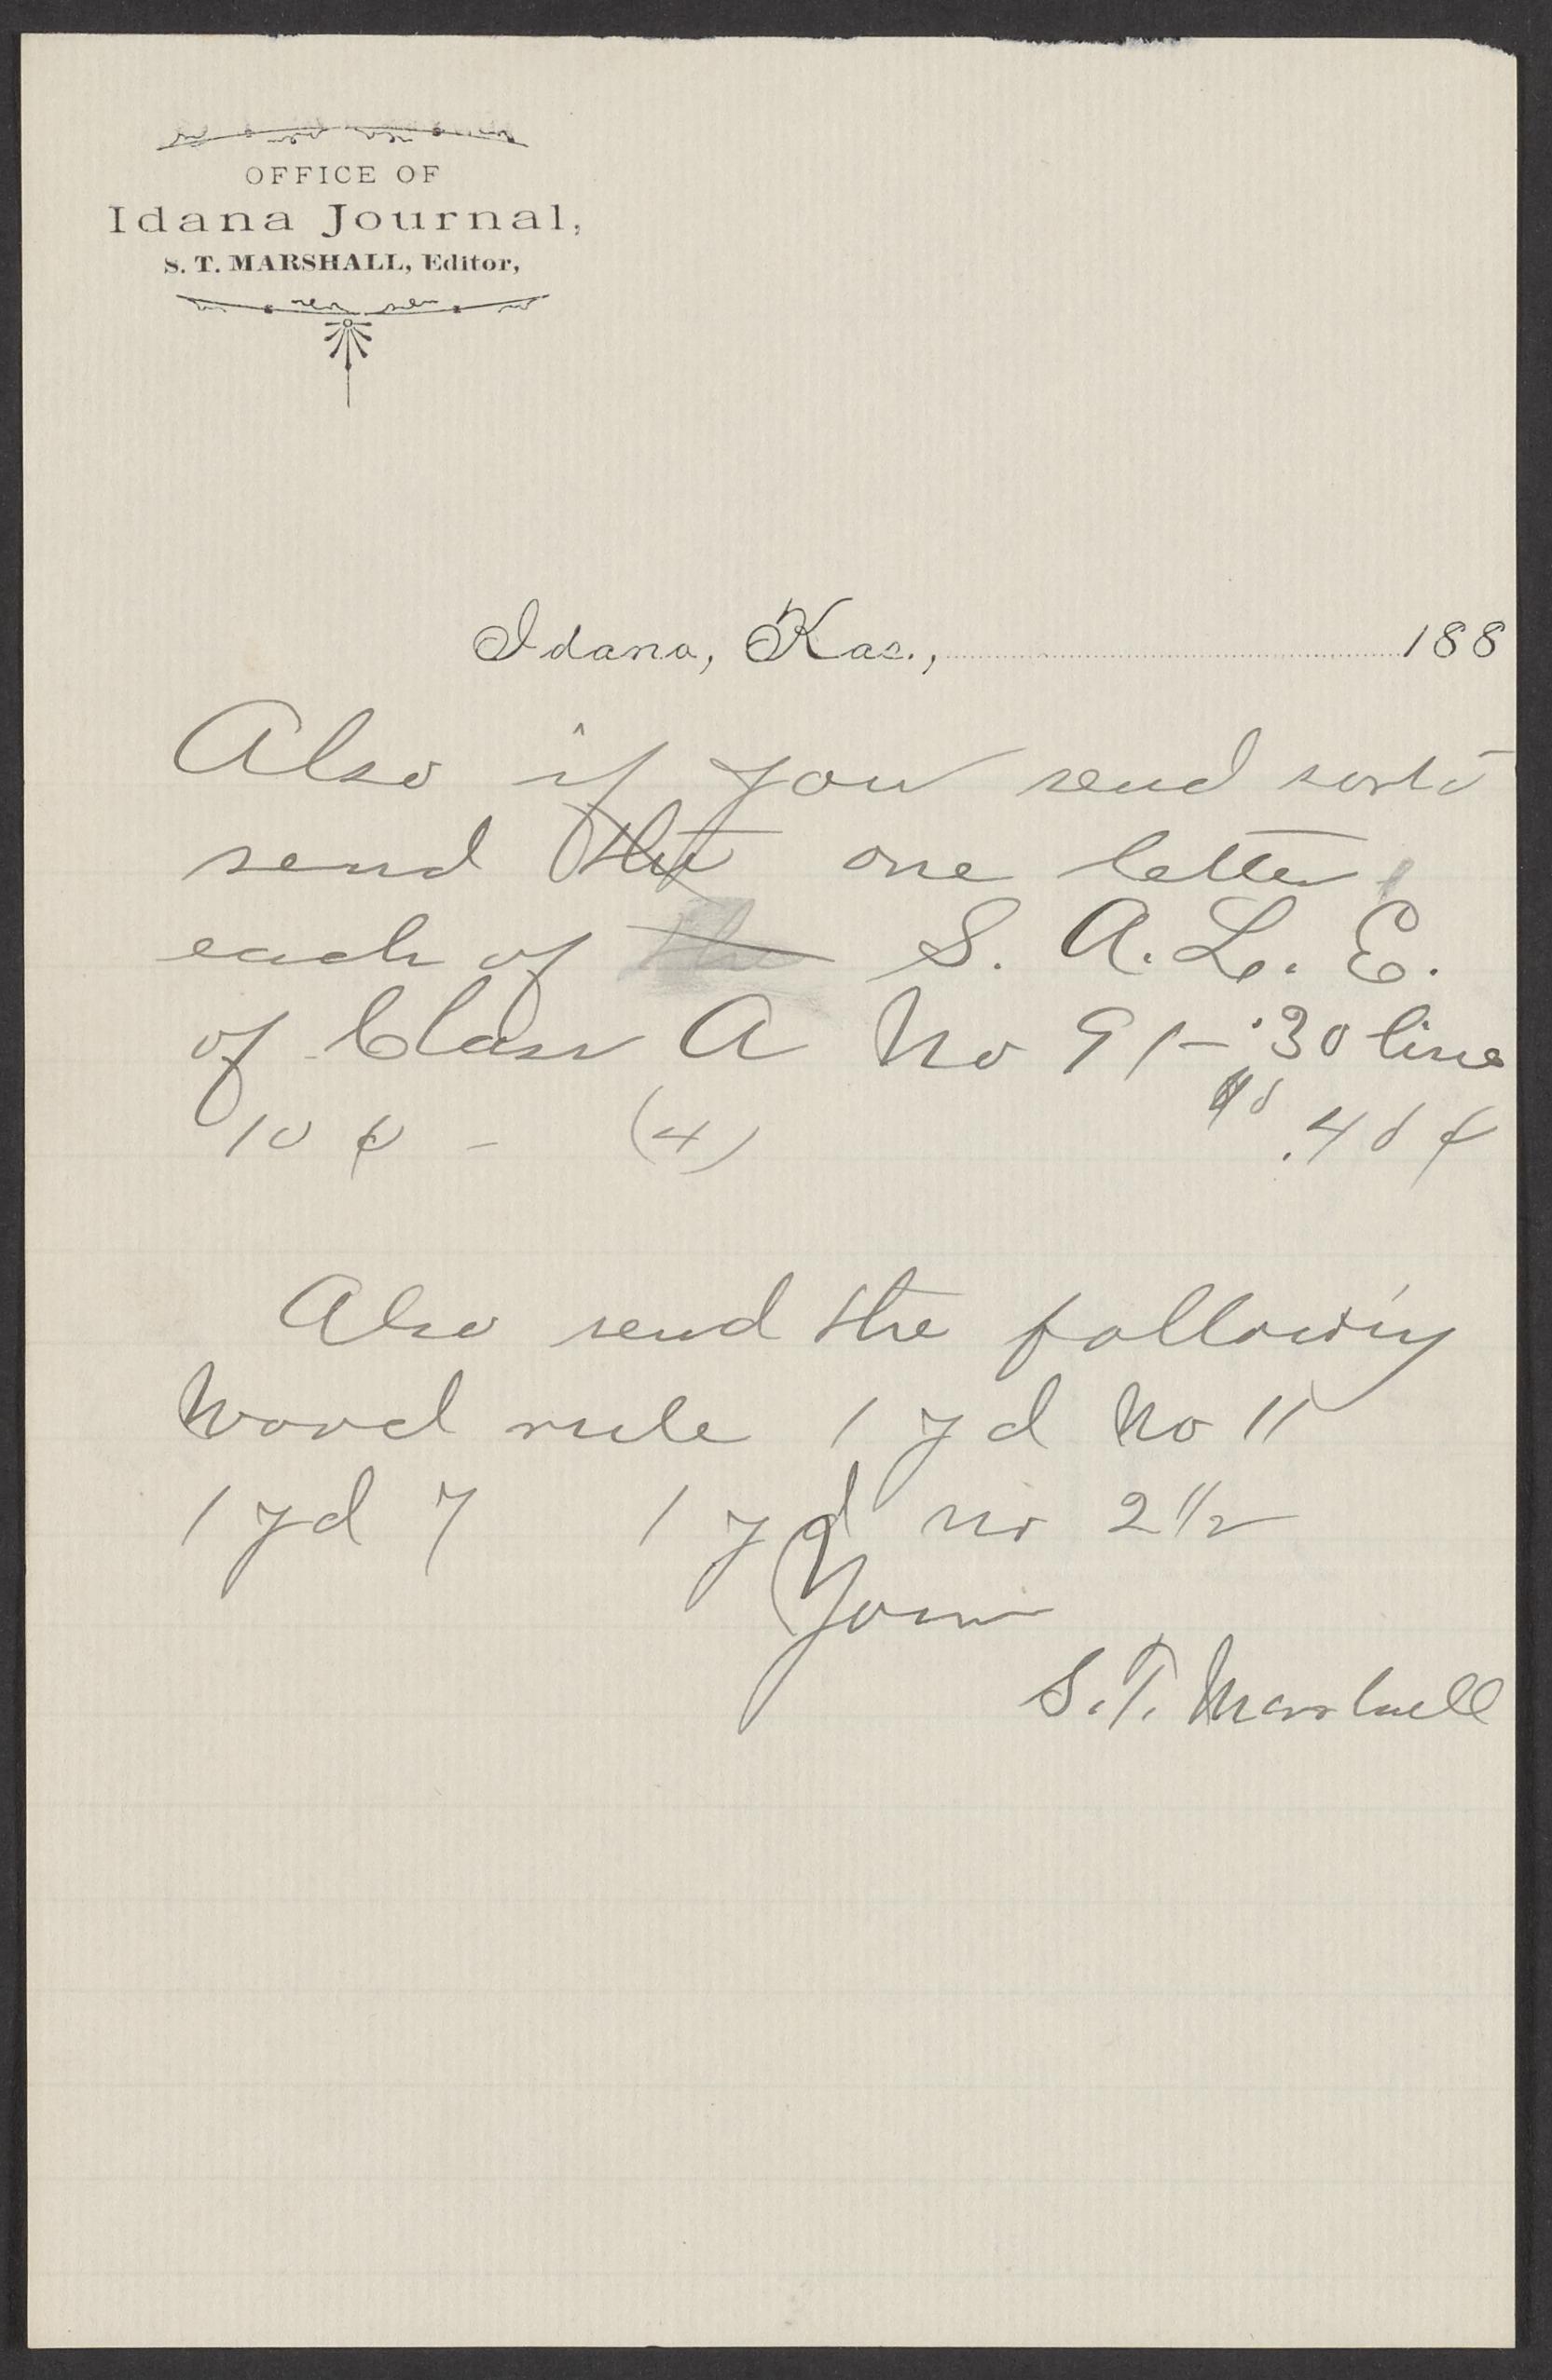 OFFICE OF
Idana Journal,
S. T. MARSHALL, Editor,
Idana, Kas., 188
Also if you send sorts
send the one letter
each of the S. A. L. E.
of Class A No 91 - 30 line
10 ¢ - (4) .40 ¢
Also send the following
Wood rule 1 yd No 11
1 yd 7 1 yd no 2 1/2
Yours
S. T. Marshall